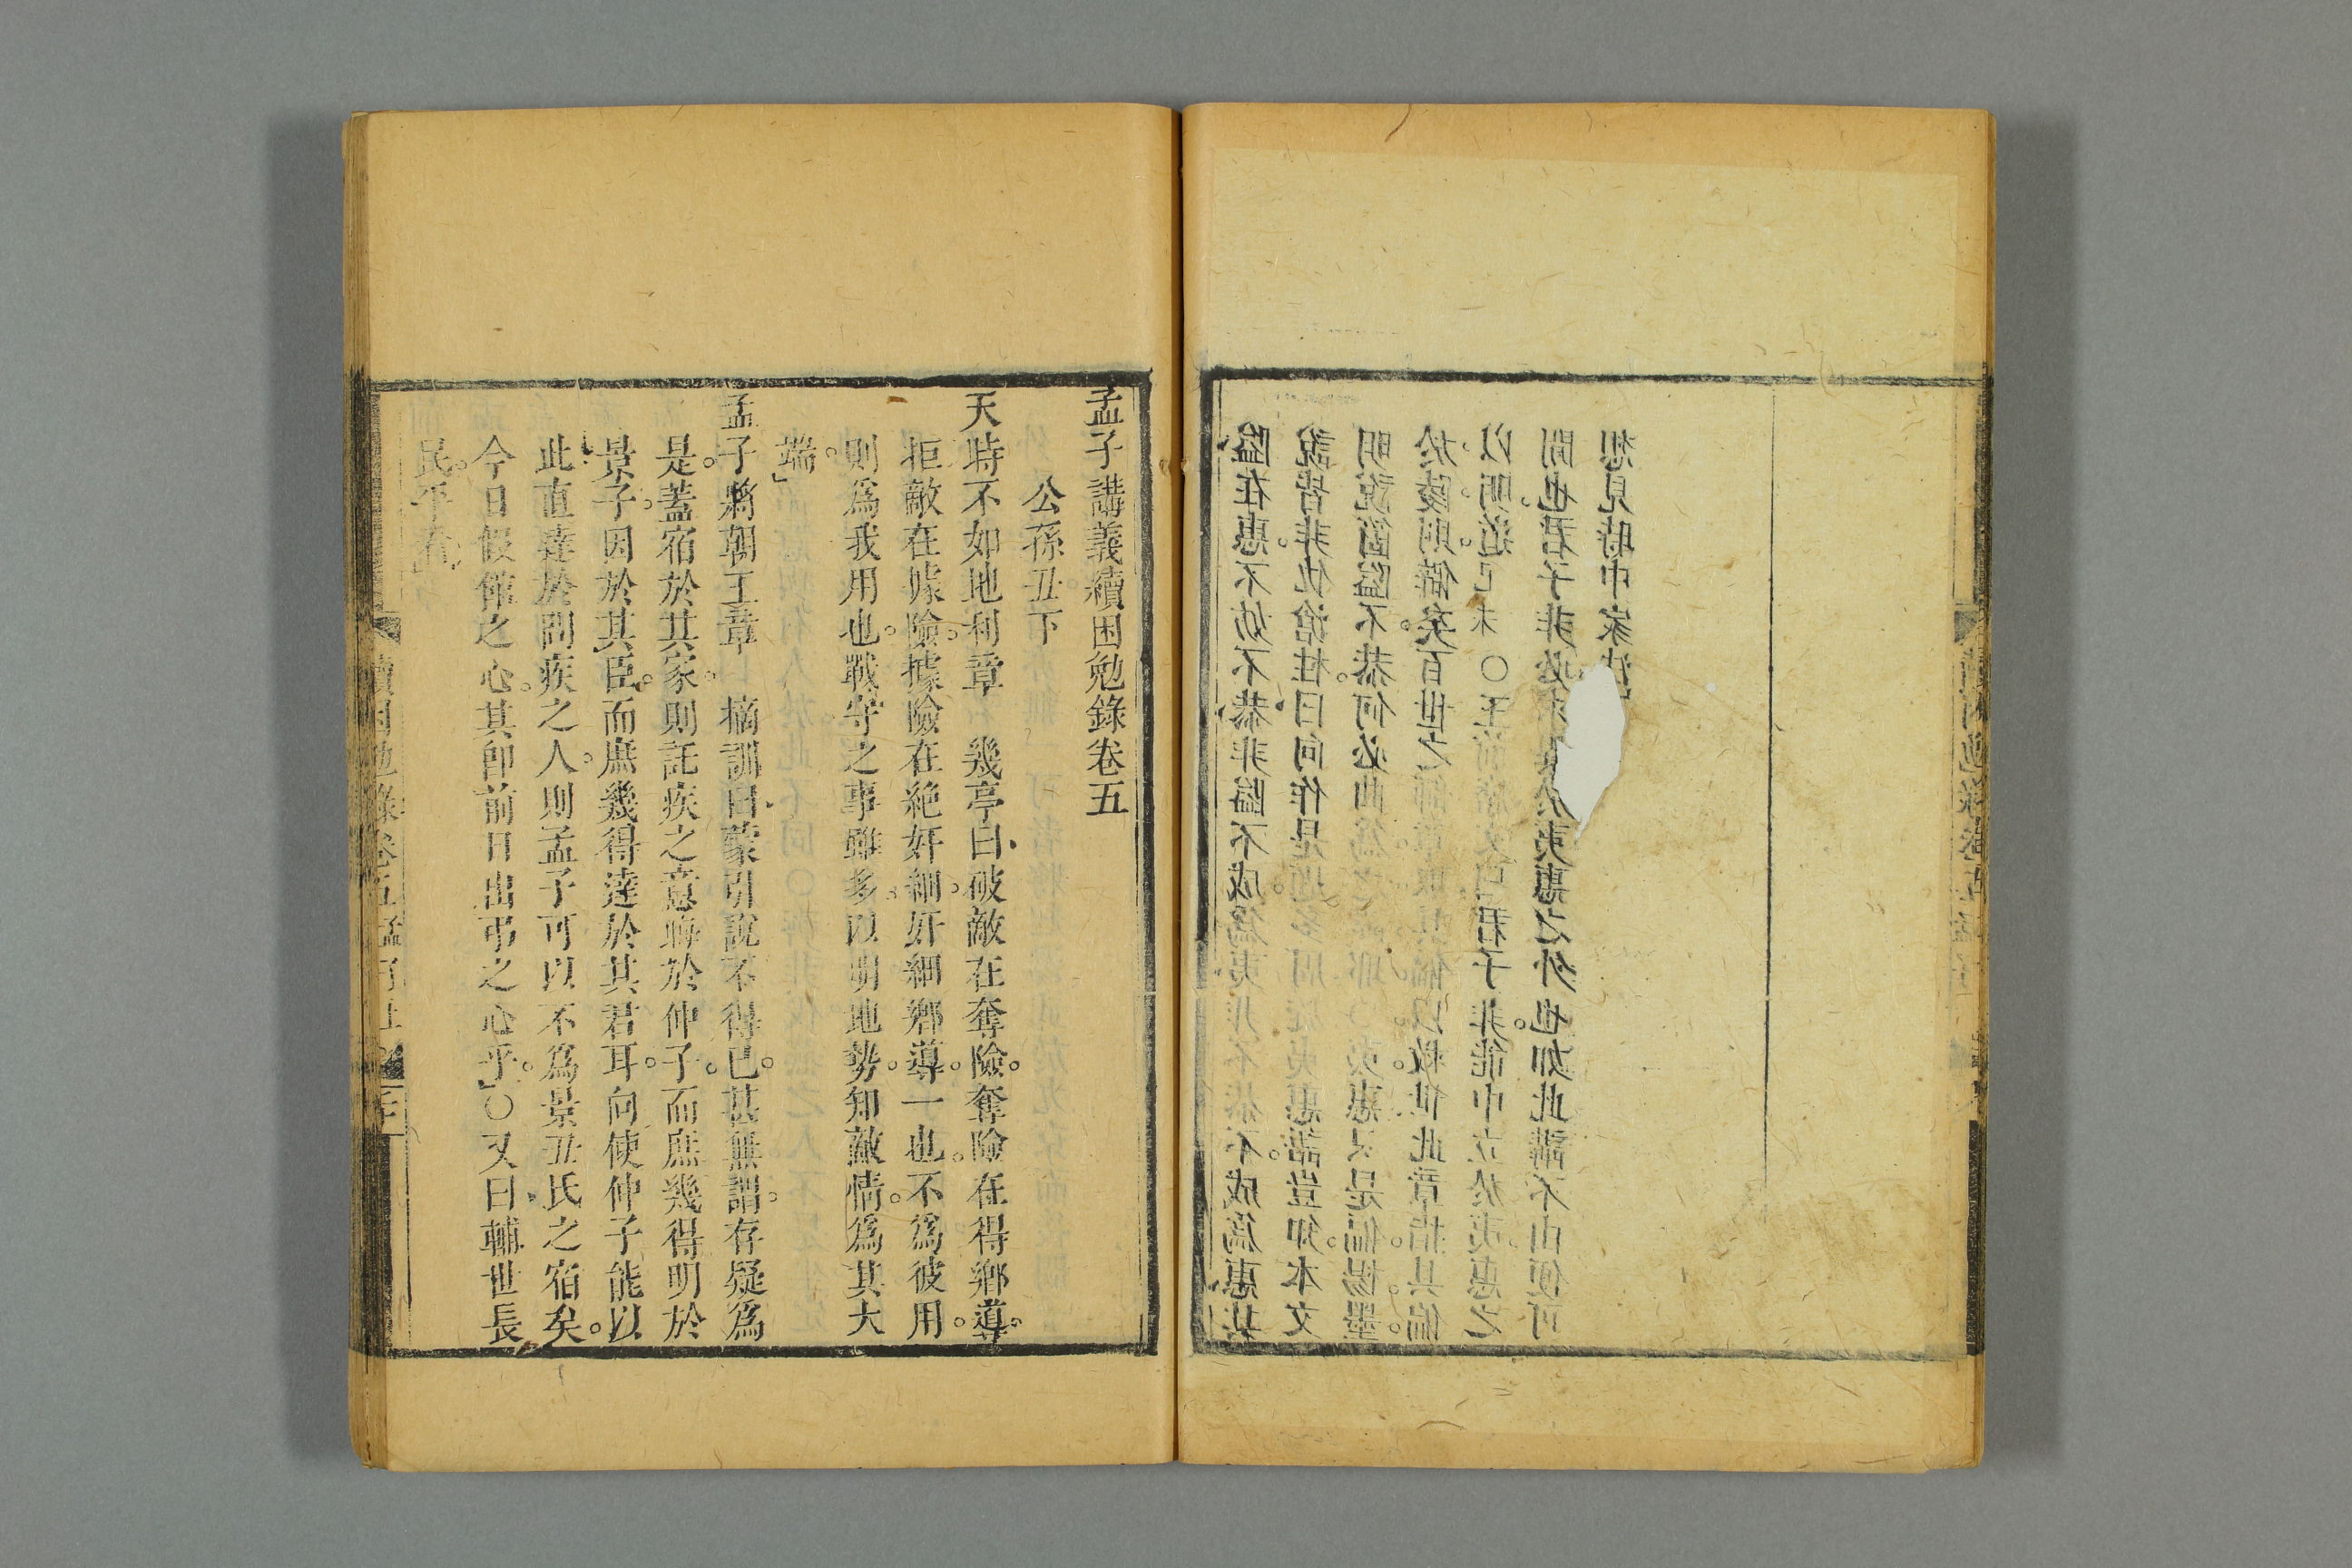 隘在惠。不妨不恭。非隘不成爲夷。非不恭不成爲惠。其
說皆非。仇滄柱曰。向作是題。多周旋夷惠語。豈知本文
明說箇隘不恭。何必曲爲之耶。夷惠只是偏。楊墨
於陵。則僻矣。百世之師章。取其偏以救世。此章。指其偏
以明道。己未 〇王君子非能中立於夷惠之
間也。君子非必夷惠之外也。如此講不由。便可
想見時中家法
孟子講義續困勉錄卷五
公孫丑下
天時不如地利章 幾亭曰。破敵在奪險。奪險在得鄉導。
拒敵在據險。據險在絶奸細。奸細鄉導一也。不爲彼用。
則爲我用也。戰守之事雖多。以明地勢。知敵情。爲其大
端。
孟子將朝王章 摘訓曰。蒙引說不得已。甚無謂。存疑爲
是。蓋宿於其家。則託疾之意。晦於仲子。而庶幾得明於
景子。因於其臣。而庶幾得達於其君耳。向使仲子能以
此直達於問疾之人。則孟子可以不爲景丑氏之宿矣。
今日假館之心。其卽前日出弔之心乎。〇又曰。輔世長
民。平看。
續困勉錄卷五孟子上